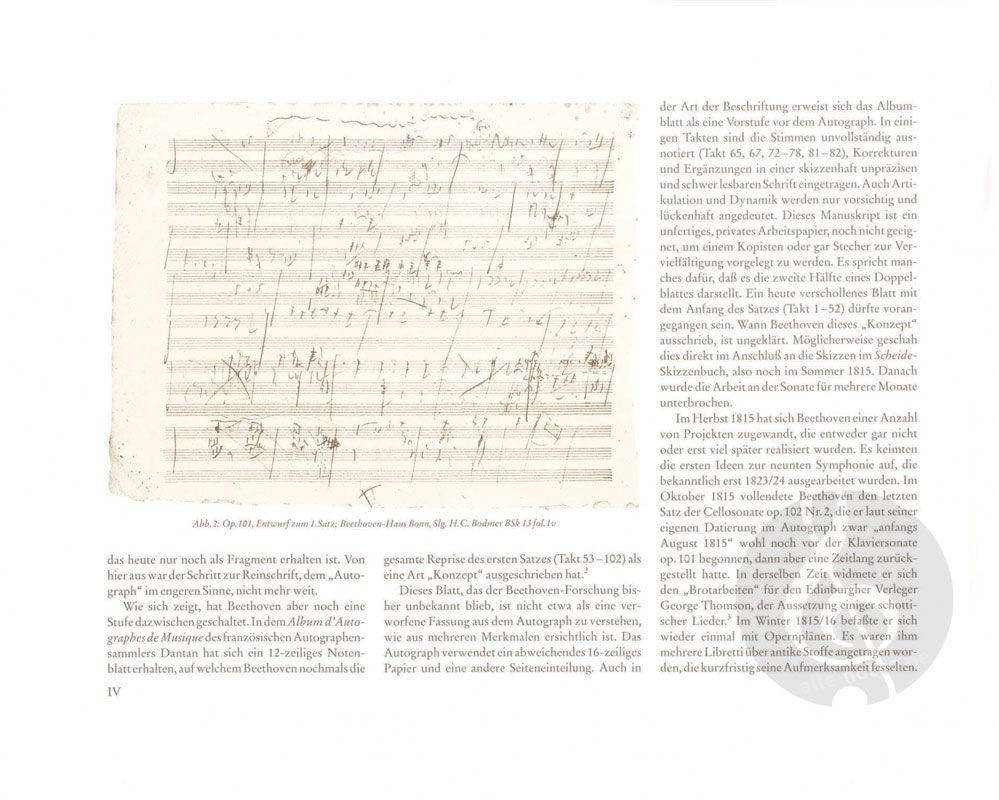 Abb. 2: Op. 101, Entwurf zum 1. Satz; Beethoven-Haus Bonn, Slg. H. C. Bodmer BSk 13 fol. 1v
das heute nur noch als Fragment erhalten ist. Von
hier aus war der Schritt zur Reinschrift, dem „Auto-
graph“ im engeren Sinne, nicht mehr weit.
Wie sich zeigt, hat Beethoven aber noch eine
Stufe dazwischen geschaltet. In dem Album d'Auto-
graphes de Musique des französischen Autographen-
sammlers Dantan hat sich ein 12-zeiliges Noten-
blatt erhalten, auf welchem Beethoven nochmals die
IV
gesamte Reprise des ersten Satzes (Takt 53–102) als
eine Art „Konzept“ ausgeschrieben hat.²
Dieses Blatt, das der Beethoven-Forschung bis-
her unbekannt blieb, ist nicht etwa als eine ver-
worfene Fassung aus dem Autograph zu verstehen,
wie aus mehreren Merkmalen ersichtlich ist. Das
Autograph verwendet ein abweichendes 16-zeiliges
Papier und eine andere Seiteneinteilung. Auch in
der Art der Beschriftung erweist sich das Album-
blatt als eine Vorstufe vor dem Autograph. In eini-
gen Takten sind die Stimmen unvollständig aus-
notiert (Takt 65, 67, 72–78, 81–82), Korrekturen
und Ergänzungen in einer skizzenhaft unpräzisen
und schwer lesbaren Schrift eingetragen. Auch Arti-
kulation und Dynamik werden nur vorsichtig und
lückenhaft angedeutet. Dieses Manuskript ist ein
unfertiges, privates Arbeitspapier, noch nicht geeig-
net, um einem Kopisten oder gar Stecher zur Ver-
vielfältigung vorgelegt zu werden. Es spricht man-
ches dafür, daß es die zweite Hälfte eines Doppel-
blattes darstellt. Ein heute verschollenes Blatt mit
dem Anfang des Satzes (Takt 1–52) dürfte voran-
gegangen sein. Wann Beethoven dieses „Konzept“
ausschrieb, ist ungeklärt. Möglicherweise geschah
dies direkt im Anschluß an die Skizzen im Scheide-
Skizzenbuch, also noch im Sommer 1815. Danach
wurde die Arbeit an der Sonate für mehrere Monate
unterbrochen.
Im Herbst 1815 hat sich Beethoven einer Anzahl
von Projekten zugewandt, die entweder gar nicht
oder erst viel später realisiert wurden. Es keimten
die ersten Ideen zur neunten Symphonie auf, die
bekanntlich erst 1823/24 ausgearbeitet wurden. Im
Oktober 1815 vollendete Beethoven den letzten
Satz der Cellosonate op. 102 Nr. 2, die er laut seiner
eigenen Datierung im Autograph zwar „anfangs
August 1815“ wohl noch vor der Klaviersonate
op. 101 begonnen, dann aber eine Zeitlang zurück-
gestellt hatte. In derselben Zeit widmete er sich
den „Brotarbeiten“ für den Edinburgher Verleger
George Thomson, der Aussetzung einiger schotti-
scher Lieder.³ Im Winter 1815/16 befaßte er sich
wieder einmal mit Opernplänen. Es waren ihm
mehrere Libretti über antike Stoffe angetragen wor-
den, die kurzfristig seine Aufmerksamkeit fesselten.